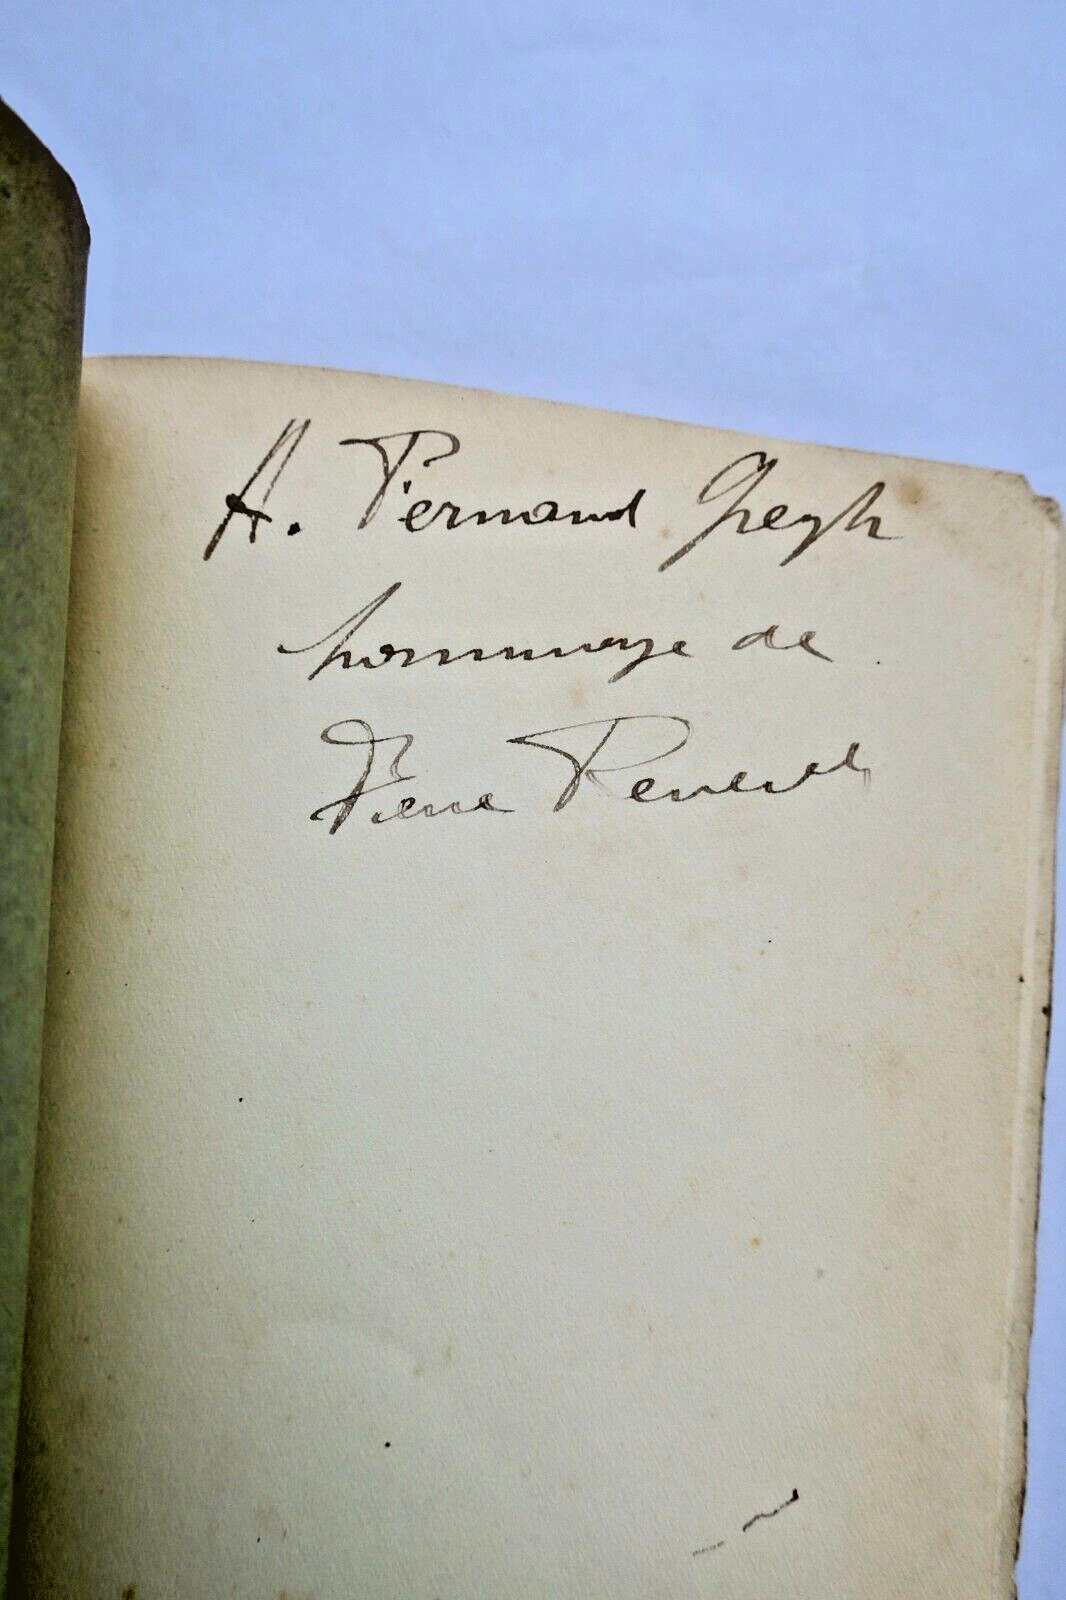 A. Fernand Gregh
hommage de
Pierre Reverdy